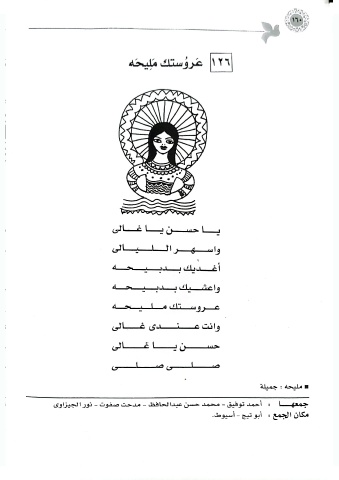 ١٦٠
١٢٦ عَروُستك مَلِيحَه
يـا حـسـن يـا غـالى
واسـهـر الـلـيـالى
أغديك بدبيحه
واعشيك بدبيحه
عروستك مليحه
وانت عندى غالى
حسن يا غالى
صلى صلى
■ مليحه : جميلة
جمعها : أحمد توفيق - محمد حسن عبدالحافظ - مدحت صفوت - نور الجيزاوى
مكان الجمع : أبو تيج - أسيوط.